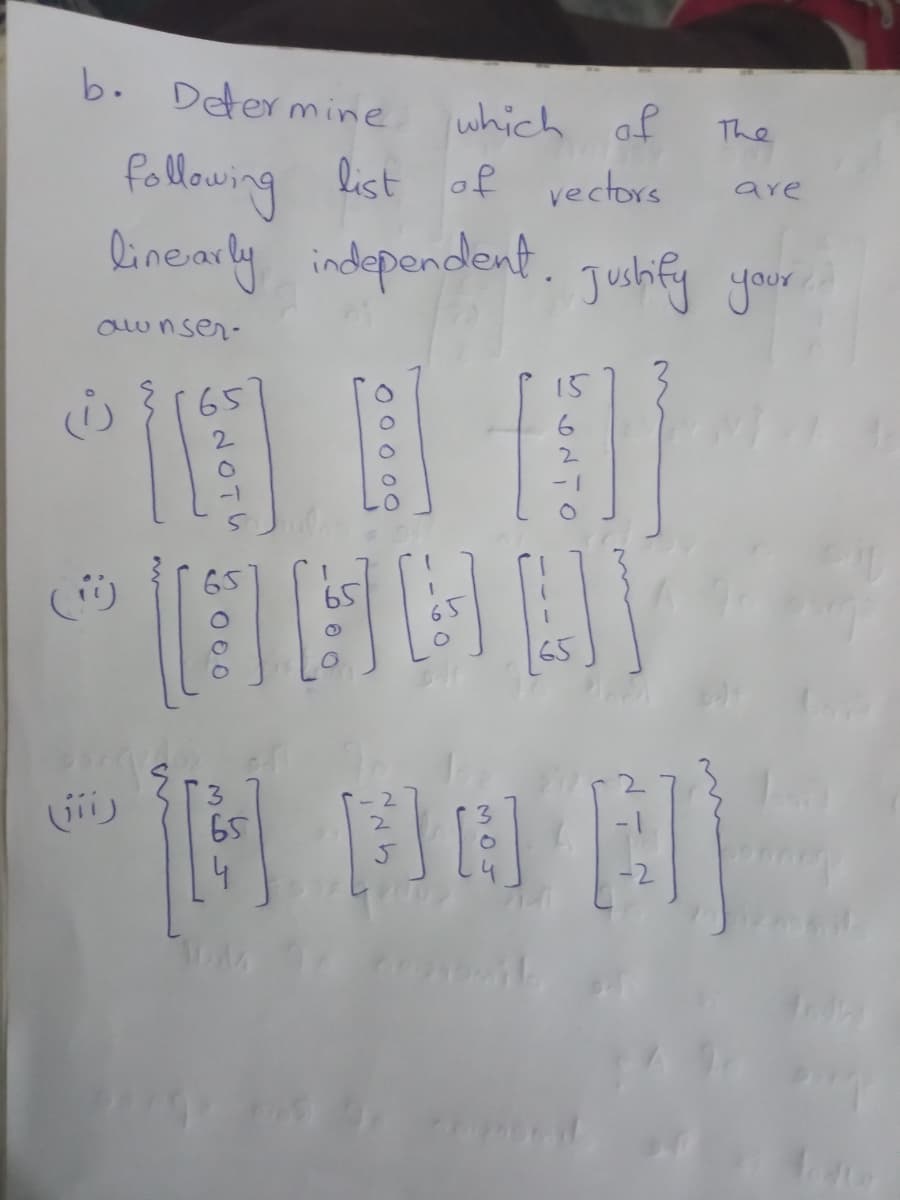 b. Determine which of The
following list of vectors are
linearly independent. Justify your
awnser.
(i) { [65 2 0 -1 5] [0 0 0 0 0] [15 6 2 -1 0] }
(ii) { [65 0 0 0] [1 65 0 0] [1 1 65 0] [1 1 1 65] }
(iii) { [3 65 4] [-2 2 5] [3 0 4] [2 -1 -2] }